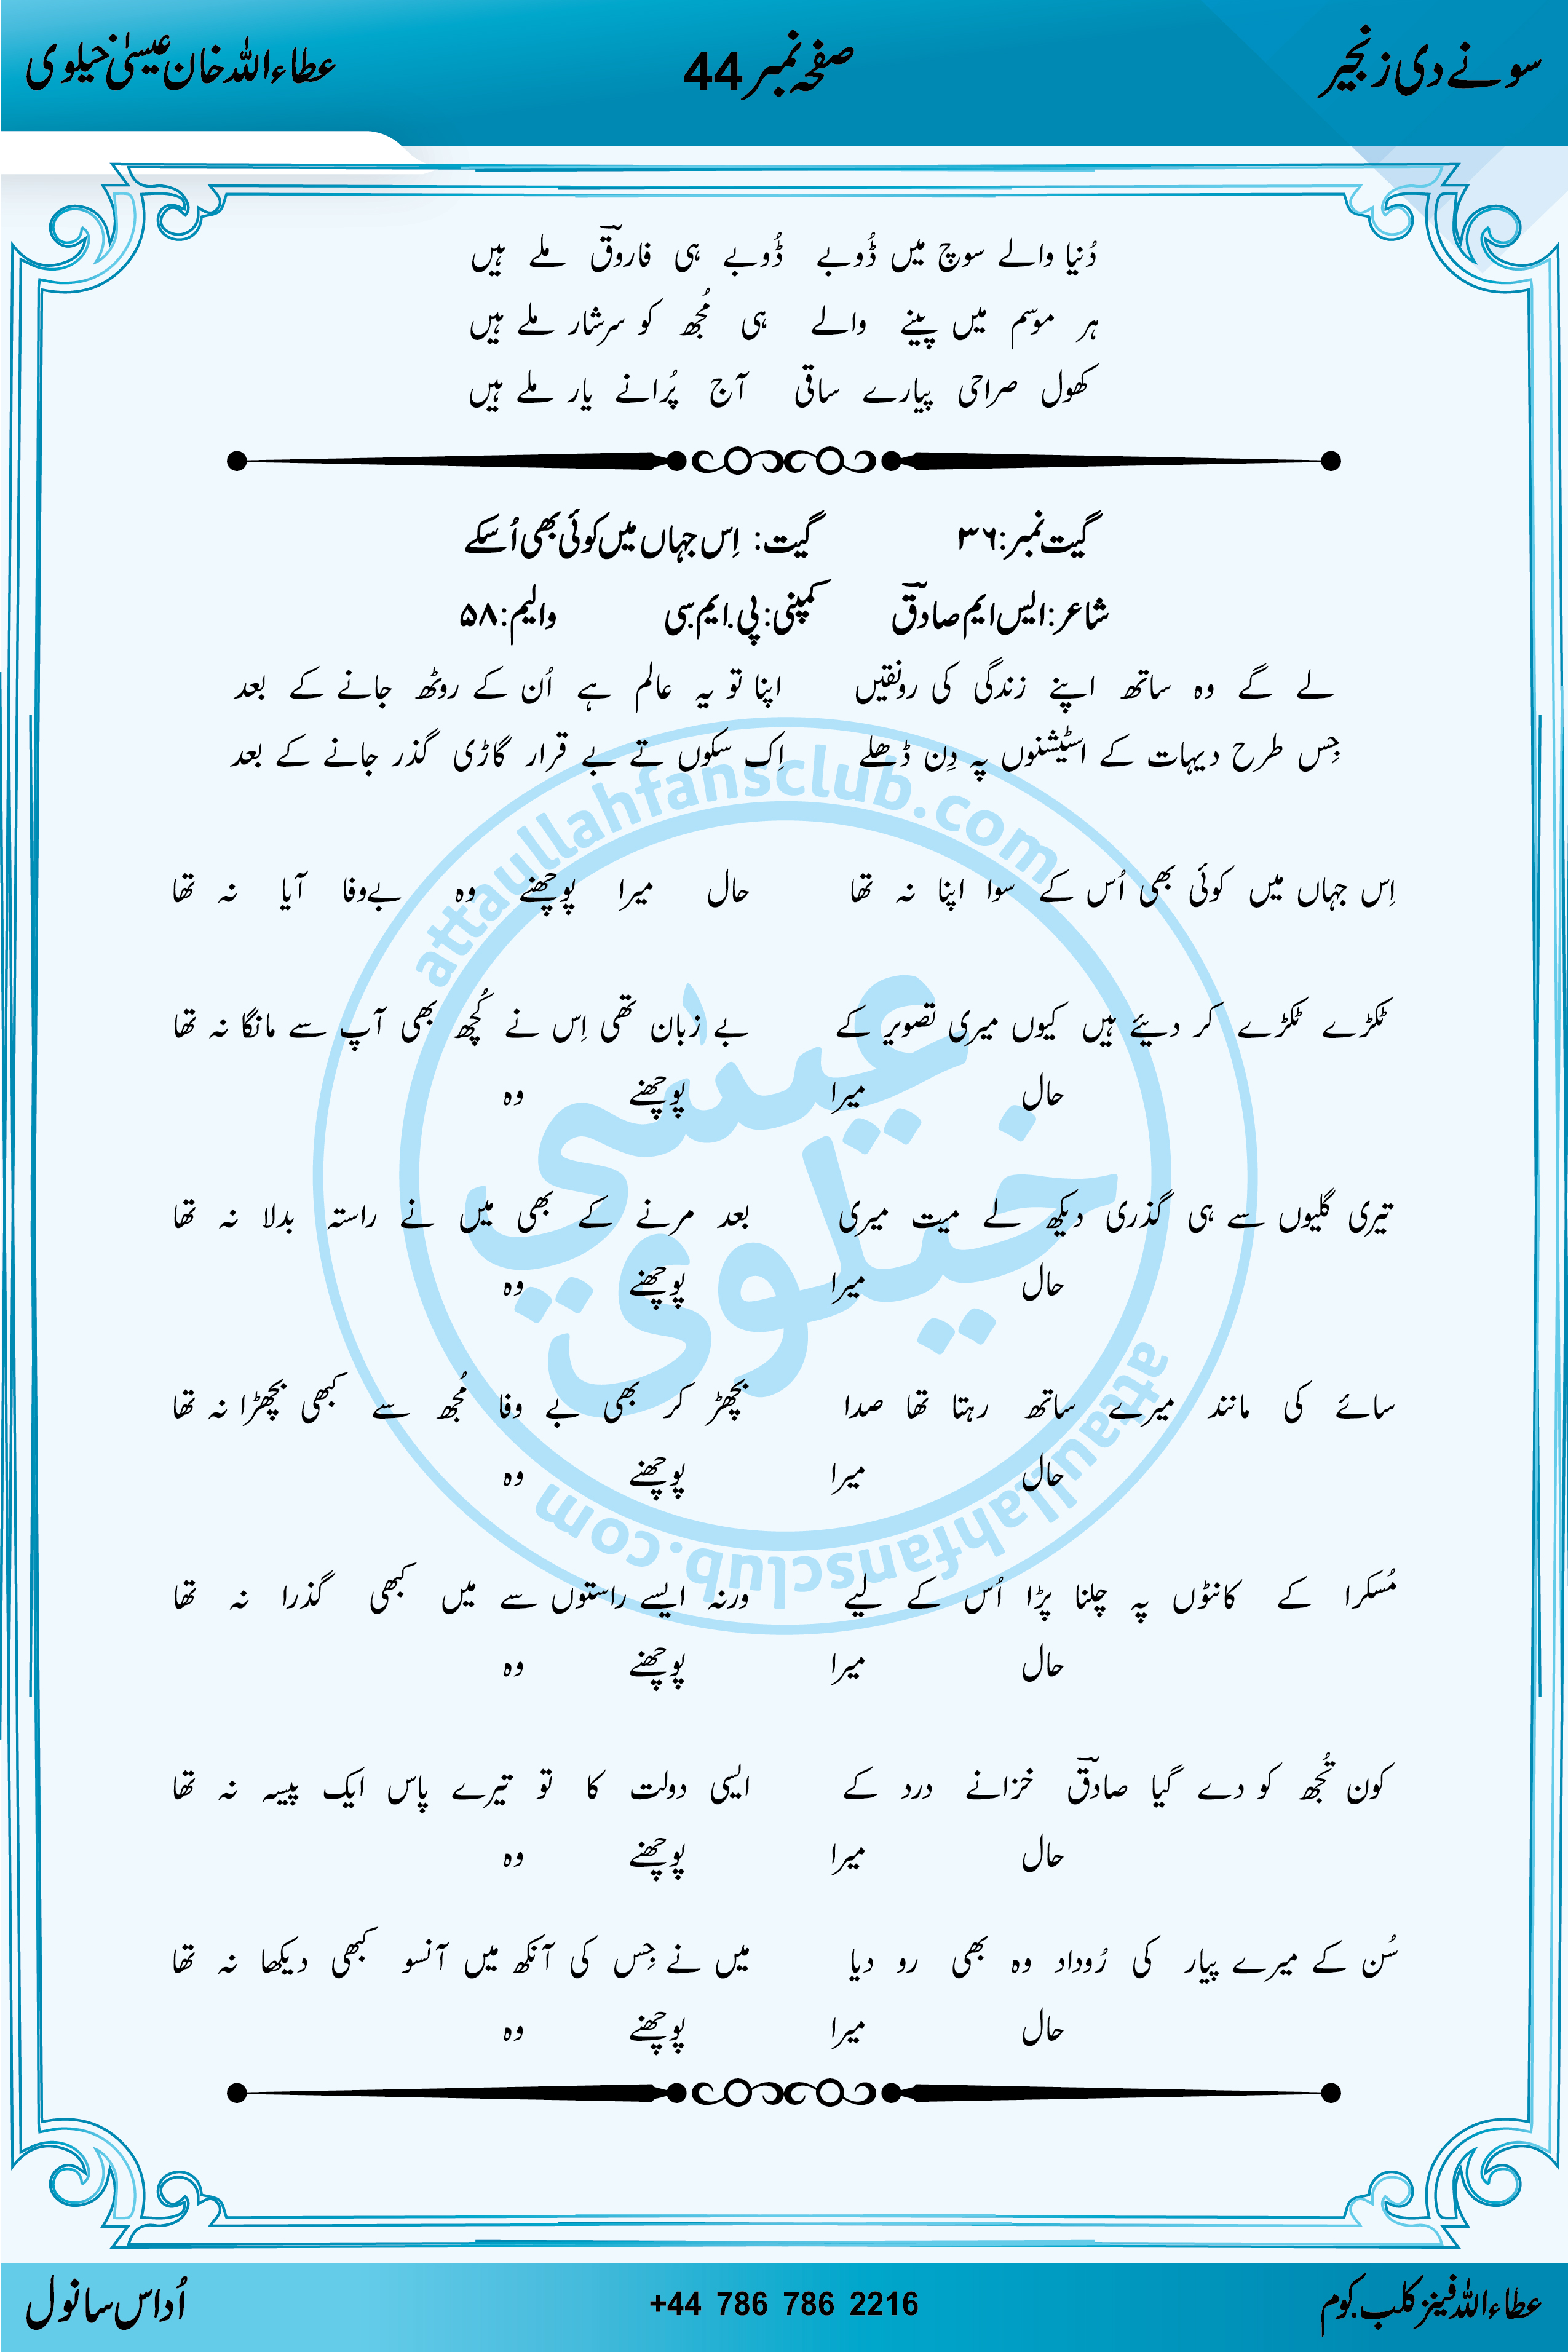 سونے دی زنجیر صفحہ نمبر 44 عطاءاللہ خان عیسیٰ خیلوی
دُنیا والے سوچ میں ڈُوبے ڈُوبے ہی فاروقؔ ملے ہیں
ہر موسم میں پینے والے ہی مُجھ کو سرشار ملے ہیں
کھول صراحی پیارے ساقی آج پُرانے یار ملے ہیں
گیت نمبر: ۳۶ گیت: اِس جہاں میں کوئی بھی اُسکے
شاعر: ایس ایم صادقؔ کمپنی: پی.ایم.سی والیم: ۵۸
لے گے وہ ساتھ اپنے زندگی کی رونقیں اپنا تو یہ عالم ہے اُن کے روٹھ جانے کے بعد
جِس طرح دیہات کے اسٹیشنوں پہ دِن ڈھلے اِک سکوں تے بے قرار گاڑی گذر جانے کے بعد
اِس جہاں میں کوئی بھی اُس کے سوا اپنا نہ تھا حال میرا پوچھنے وہ بےوفا آیا نہ تھا
ٹکڑے ٹکڑے کر دیئے ہیں کیوں میری تصویر کے بے زبان تھی اِس نے کُچھ بھی آپ سے مانگا نہ تھا
حال میرا پوچھنے وہ
تیری گلیوں سے ہی گذری دیکھ لے میت میری بعد مرنے کے بھی میں نے راستہ بدلا نہ تھا
حال میرا پوچھنے وہ
سائے کی مانند میرے ساتھ رہتا تھا صدا بچھڑ کر بھی بے وفا مُجھ سے کبھی بچھڑا نہ تھا
حال میرا پوچھنے وہ
مُسکرا کے کانٹوں پہ چلنا پڑا اُس کے لیے ورنہ ایسے راستوں سے میں کبھی گذرا نہ تھا
حال میرا پوچھنے وہ
کون تُجھ کو دے گیا صادقؔ خزانے درد کے ایسی دولت کا تو تیرے پاس ایک پیسہ نہ تھا
حال میرا پوچھنے وہ
سُن کے میرے پیار کی رُوداد وہ بھی رو دیا میں نے جِس کی آنکھ میں آنسو کبھی دیکھا نہ تھا
حال میرا پوچھنے وہ
attaullahfansclub.com
عیسیٰ
خیلوی
attaullahfansclub.com
عطاءاللہ فینز کلب.کوم +44 786 786 2216 اُداس سانول